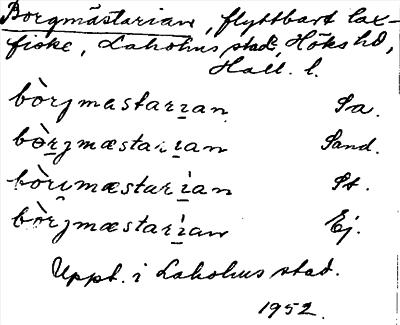 Borgmästarian, flyttbart lax-
fiske, Laholms stad, Höks hd,
Hall. l.
bòrjmastarɪan Sa.
bòrjmæstarɪan Sand.
bòrɪmæstarìan St.
bòrjmæstarìan Ej.
Uppt. i Laholms stad.
1952.